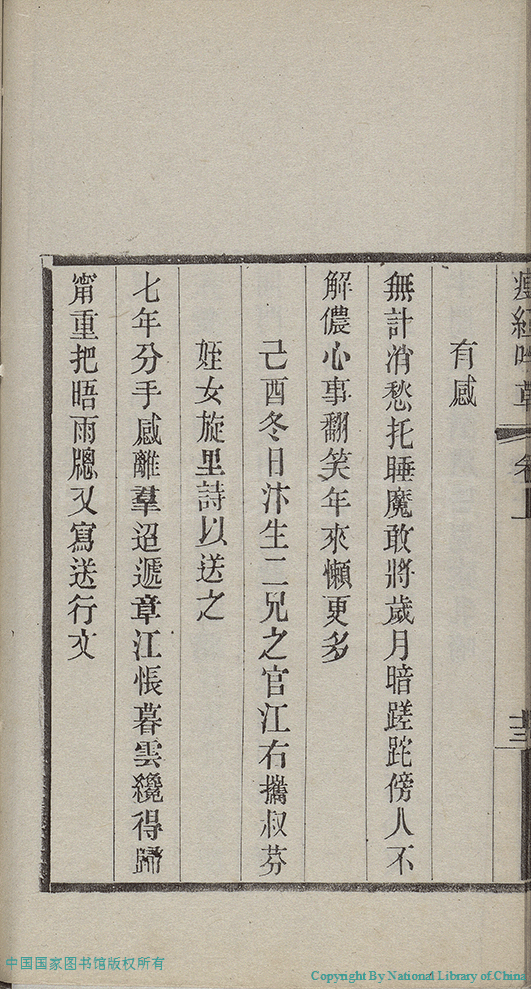 有感
無計消愁托睡魔敢將歲月暗蹉跎傍人不
解儂心事翻笑年來懶更多
己酉冬日汴生二兄之官江右攜叔芬
姪女旋里詩以送之
七年分手感離羣迢遞章江悵暮雲纔得歸
甯重把晤雨牕又寫送行文
十三
中国国家图书馆版权所有
Copyright By National Library of China